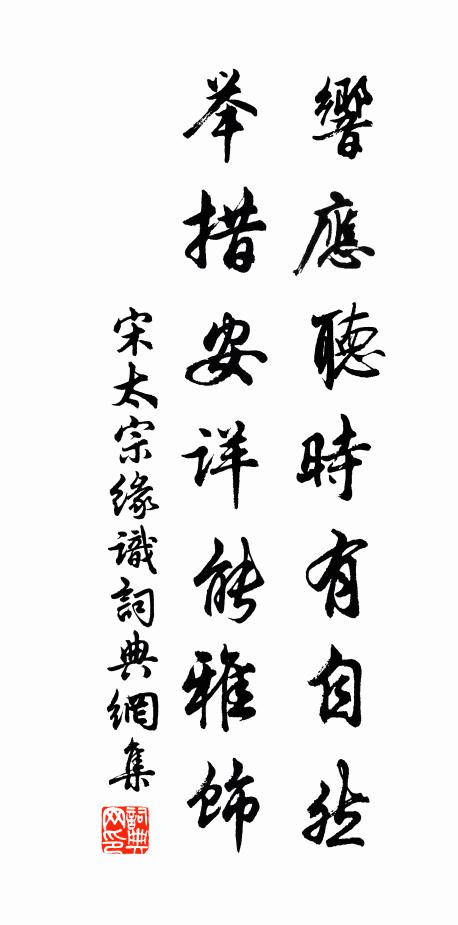 響應聽時有自然
举措安详能雅飾
宋太宗緣識詞典網集
詞典网印